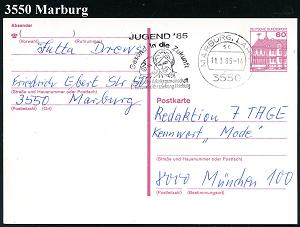 3550 Marburg
Absender
Jutta Drews
(Vorname) (Rufnummer)
Friedrich Ebert Str
(Straße und Hausnummer oder Postfach)
3550 Marburg
(Postleitzahl) (Ort)
JUGENDʼ85
in die Zukunft
MARBURG
11.3.85-14
3550
DEUTSCHE BUNDESPOST
60
Postkarte
Redaktion 7 TAGE
Kennwort „Mode"
(Straße und Hausnummer oder Postfach)
8000 München 100
(Postleitzahl) (Bestimmungsort)